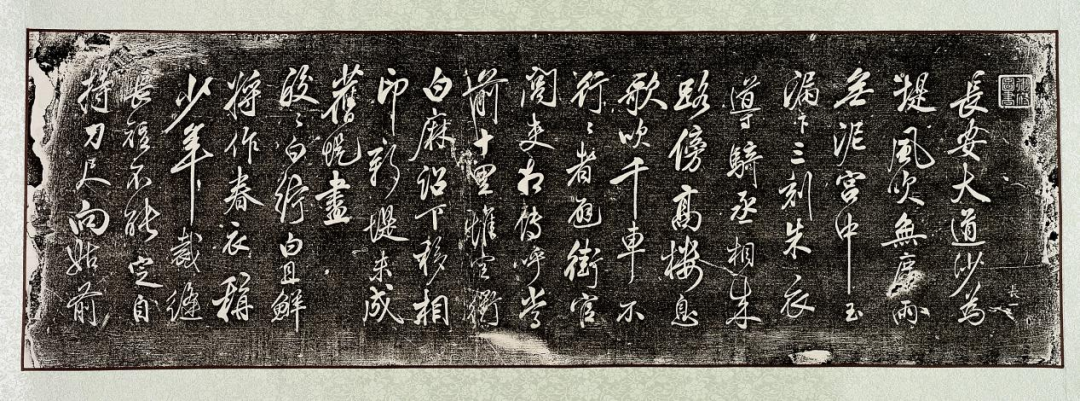 長安大道沙為
堤風吹無塵雨
無泥宮中玉
漏下三刻朱衣
導騎丞相来
路傍高樓息
歌吹千車不
行〻者避街官
閭吏相傳呼當
前十里惟空衢
白麻詔下移相
印新堤未成
舊堤盡
皎〻白紵白且鮮
將作春衣稱
少年裁縫
長短不能定自
持刀尺向姑前